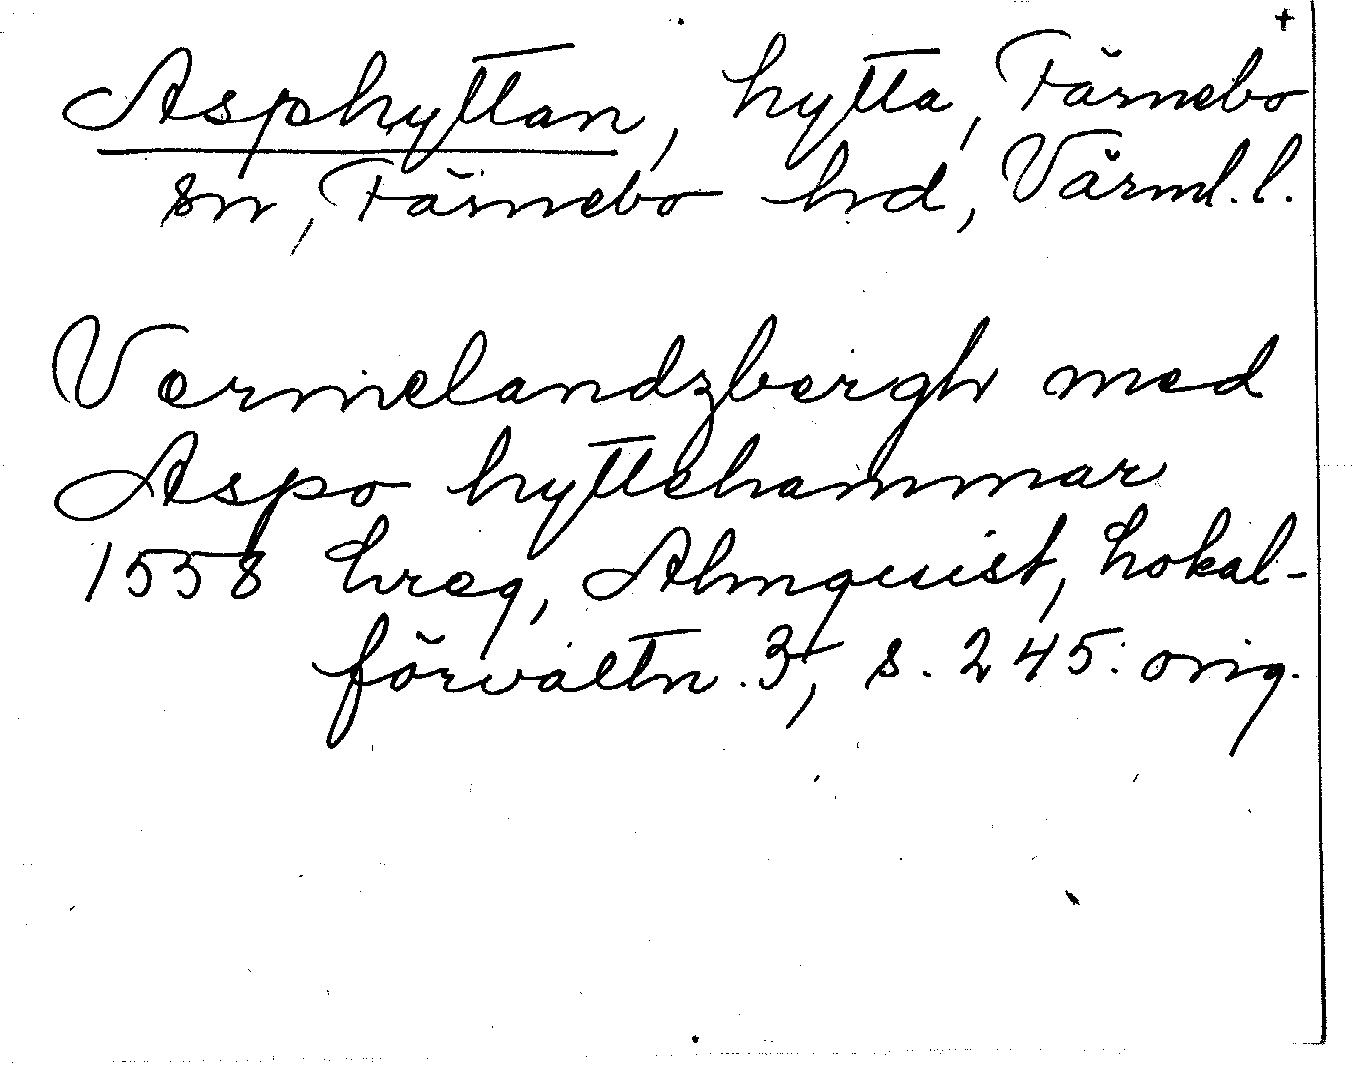 +
Asphyttan, hytta, Färnebo
sn, Färnebo hd, Värml. l.
Vermelandzbergh med
Aspo hyttehammar
1558 hreg, Almquist, Lokal-
förvaltn. 3, s. 245. orig.